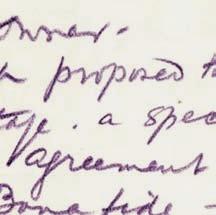 owner.
proposed to
. a spec
agreement
Bona fide -